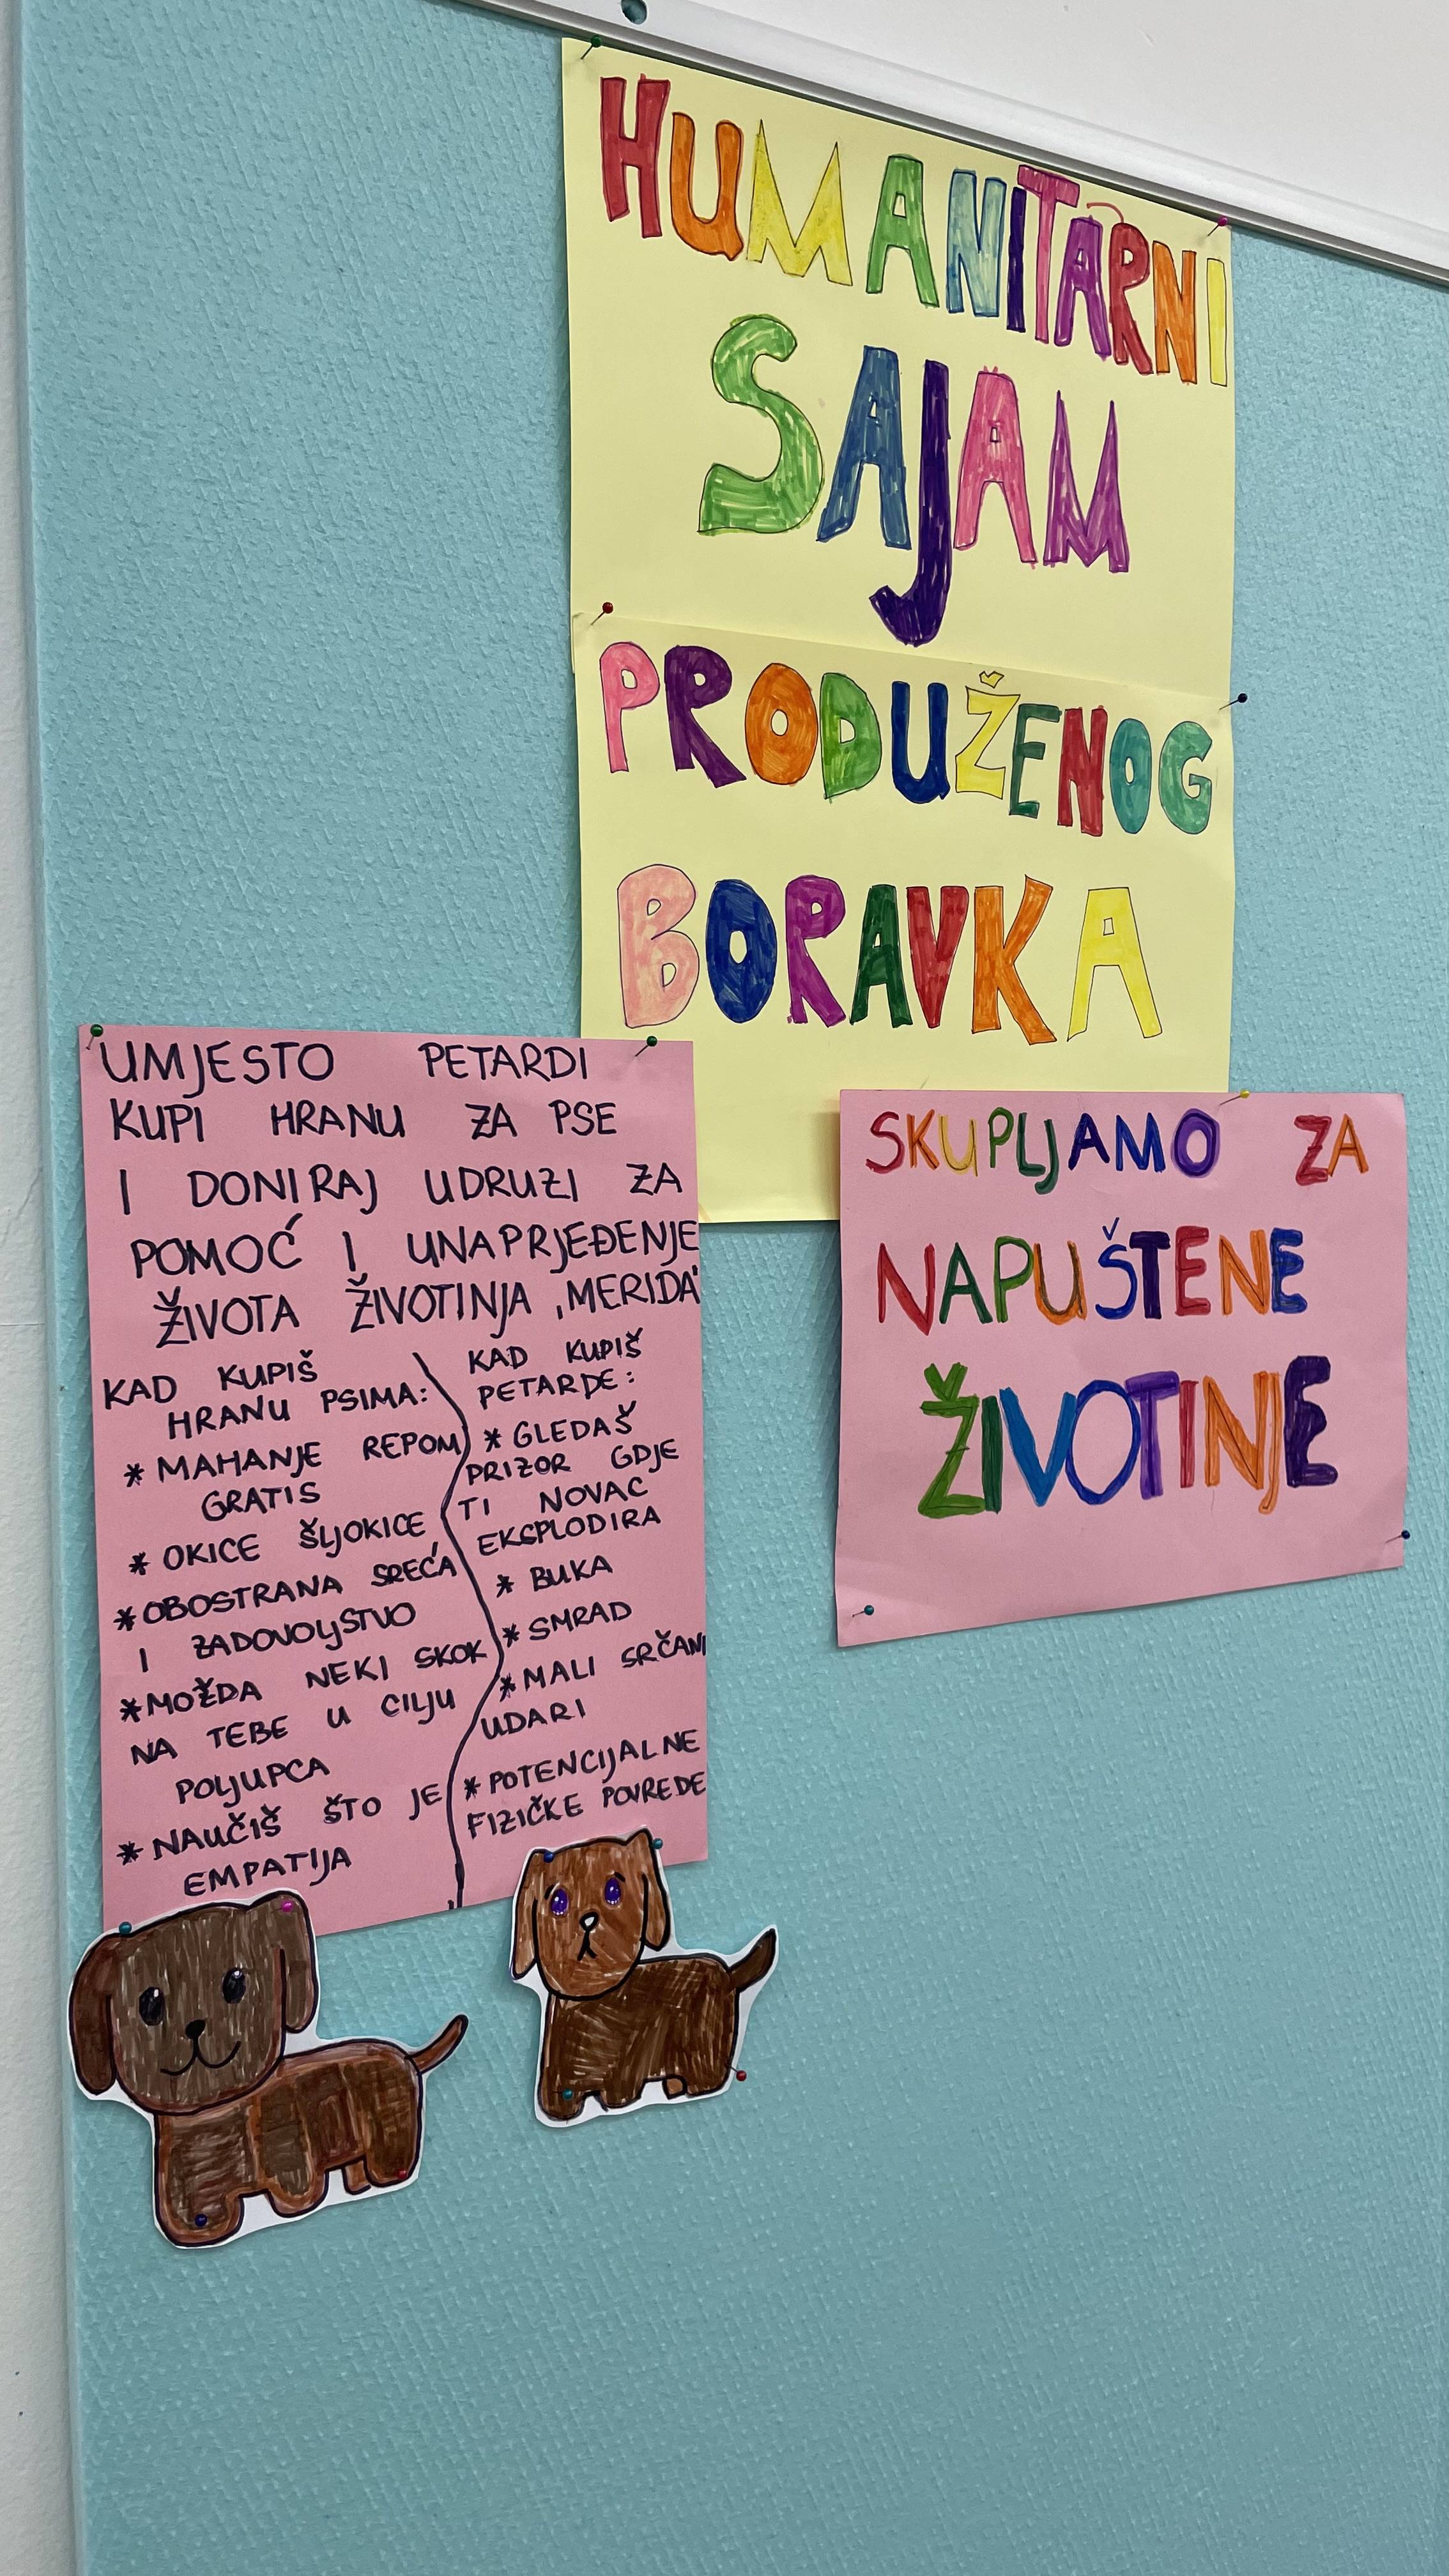 HUMANITARNI
SAJAM
PRODUŽENOG
BORAVKA
UMJESTO PETARDI
KUPI HRANU ZA PSE
I DONIRAJ UDRUZI ZA
POMOĆ I UNAPRJEĐENJE
ŽIVOTA ŽIVOTINJA ,MERIDA"
KAD KUPIŠ
HRANU PSIMA:
* MAHANJE REPOM
GRATIS
* OKICE ŠLJOKICE
* OBOSTRANA SREĆA
I ZADOVOLJSTVO
* MOŽDA NEKI SKOK
NA TEBE U CILJU
POLJUPCA
* NAUČIŠ ŠTO JE
EMPATIJA
KAD KUPIŠ
PETARDE:
* GLEDAŠ
PRIZOR GDJE
TI NOVAC
EKSPLODIRA
* BUKA
* SMRAD
* MALI SRČANI
UDARI
* POTENCIJALNE
FIZIČKE POVREDE
SKUPLJAMO ZA
NAPUŠTENE
ŽIVOTINJE